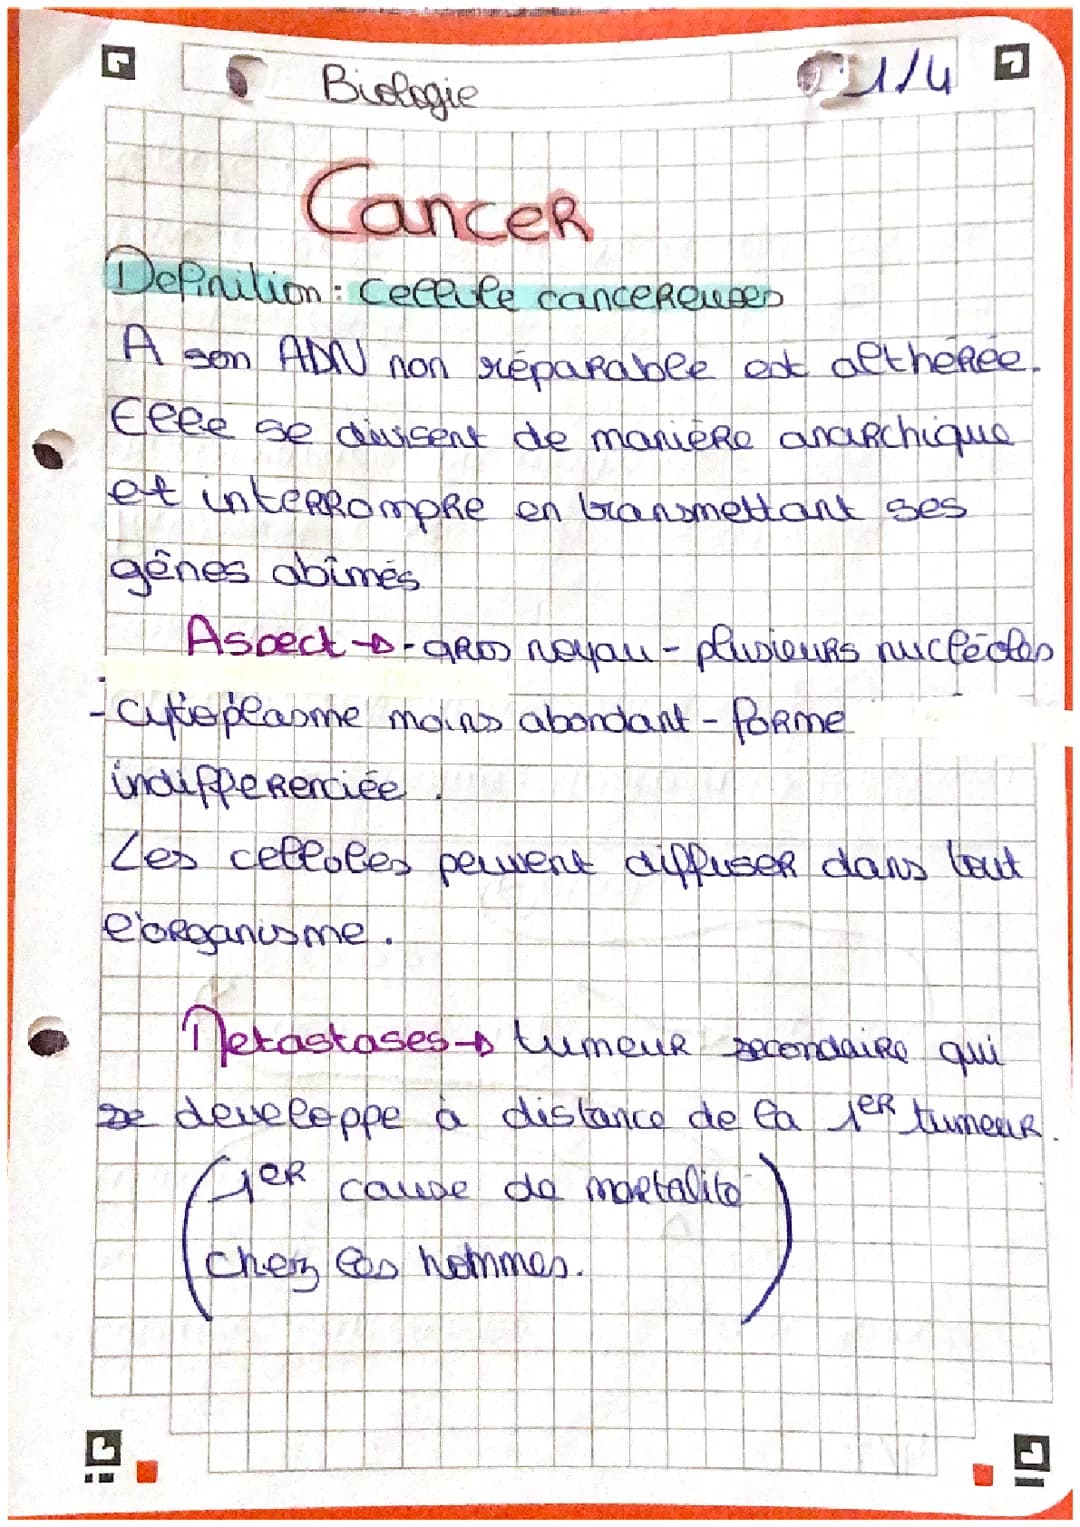 Biologie
1/4
Cancer
Definition : Cellule cancereuses
A son ADN non réparable est altherée.
Elle se divisent de manière anarchique
et interrompre en transmettant ses
gênes abîmés
Aspect → - gros noyau - plusieurs nucléoles
- cytioplasme moins abondant - forme
indifferenciée .
Les cellules peuvent diffuser dans tout
l'organisme .
Metastases → tumeur secondaire qui
se developpe à distance de la 1er tumeur .
(1er cause de mortalité
chez les hommes. )